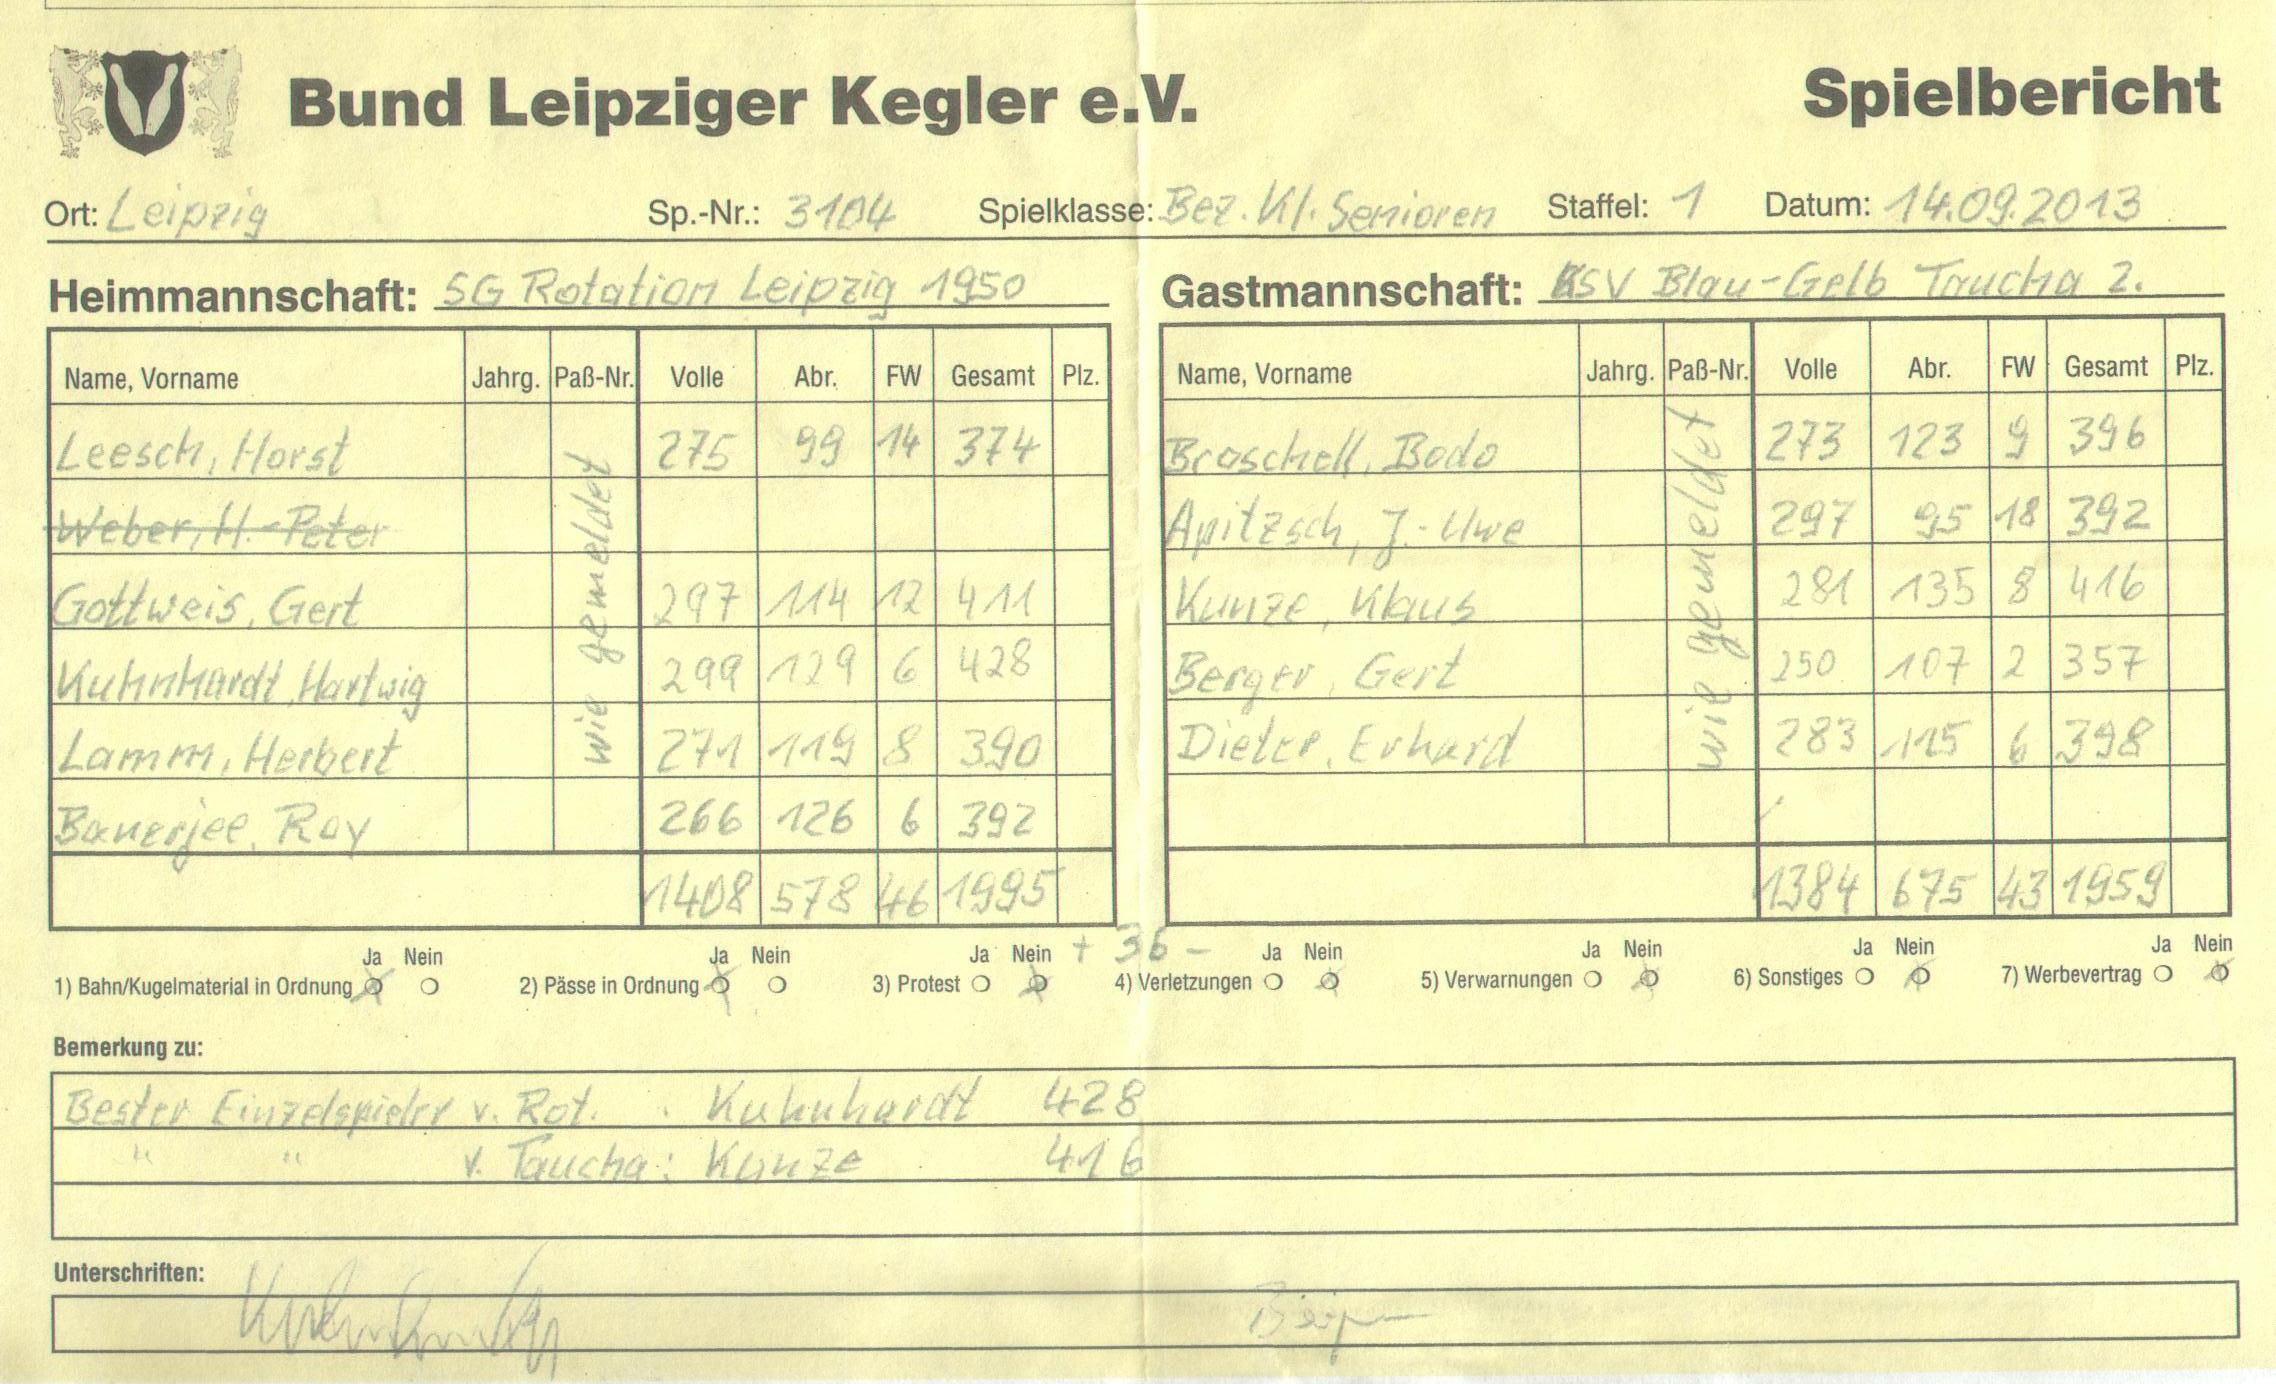 Bund Leipziger Kegler e.V. Spielbericht
Ort: Leipzig Sp.-Nr.: 3104 Spielklasse: Bez. Kl. Senioren Staffel: 1 Datum: 14.09.2013
Heimmannschaft: SG Rotation Leipzig 1950
Name, Vorname Jahrg. Paß-Nr. Volle Abr. FW Gesamt Plz.
Leesch, Horst 275 99 14 374
Weber, H.-Peter
Gottweis, Gert 297 114 12 411
Kuhnhardt, Hartwig 299 129 6 428
Lamm, Herbert 271 119 8 390
Banerjee, Roy 266 126 6 392
wie gemeldet
1408 578 46 1995
Gastmannschaft: KSV Blau-Gelb Taucha 2.
Name, Vorname Jahrg. Paß-Nr. Volle Abr. FW Gesamt Plz.
Broschell, Bodo 273 123 9 396
Apitzsch, J.-Uwe 297 95 18 392
Kunze, Klaus 281 135 8 416
Berger, Gert 250 107 2 357
Dieter, Erhard 283 115 6 398
wie gemeldet
1384 675 43 1959
+ 36 -
Ja Nein Ja Nein Ja Nein Ja Nein Ja Nein Ja Nein Ja Nein
1) Bahn/Kugelmaterial in Ordnung 2) Pässe in Ordnung 3) Protest 4) Verletzungen 5) Verwarnungen 6) Sonstiges 7) Werbevertrag
Bemerkung zu:
Bester Einzelspieler v. Rot. : Kuhnhardt 428
" " v. Taucha: Kunze 416
Unterschriften: